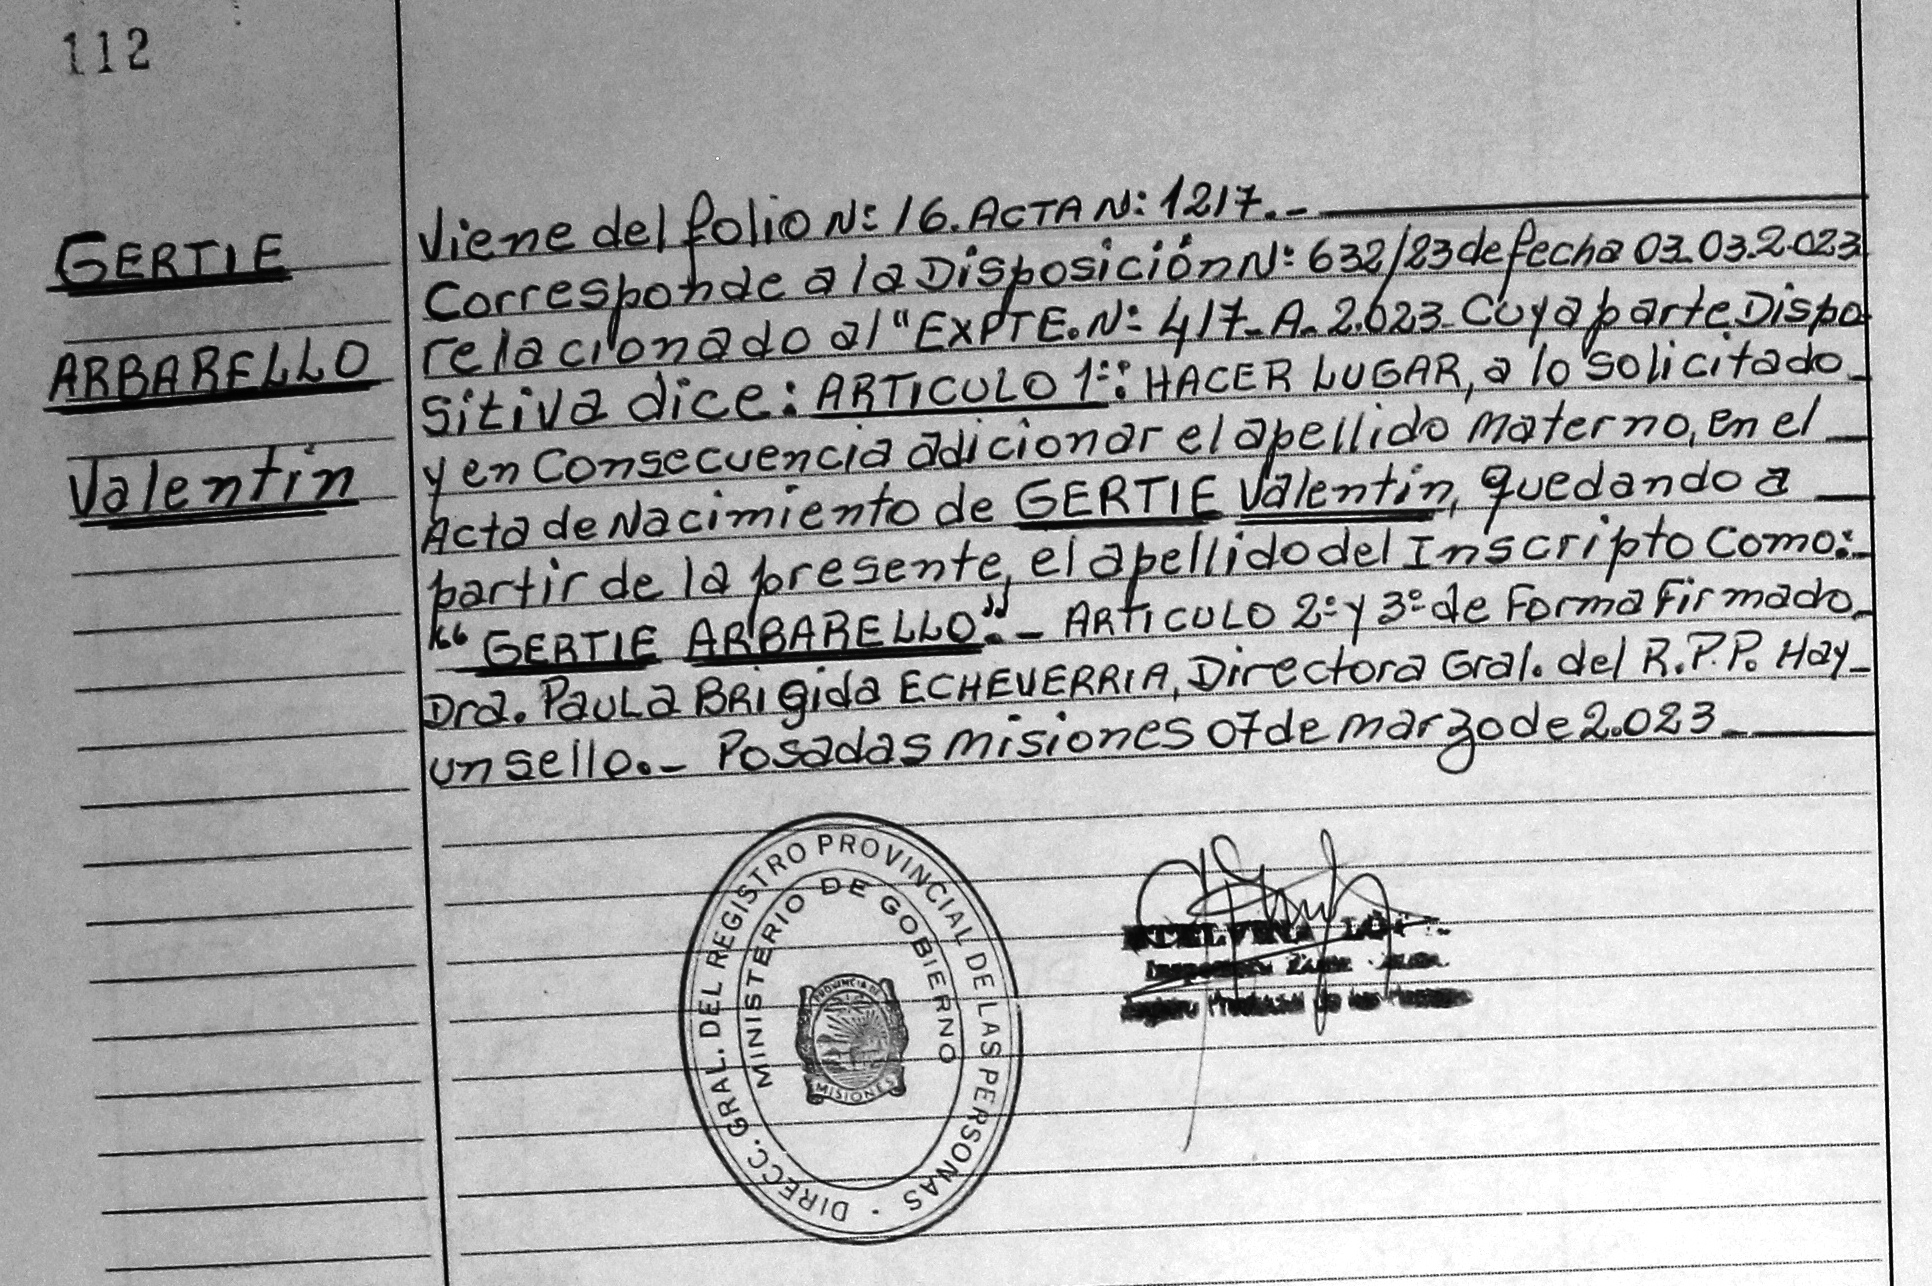 112
GERTIE
ARBARELLO
Valentín
Viene del folio Nº 16. ACTA Nº 1217.-
Corresponde a la Disposición Nº 632/23 de fecha 03.03.2.023
relacionado al "EXPTE. Nº 417-A-2.023- Cuya parte Dispo
sitiva dice: ARTICULO 1º: HACER LUGAR, a lo solicitado
y en Consecuencia adicionar el apellido Materno, en el
Acta de Nacimiento de GERTIE Valentín, quedando a
partir de la presente, el apellido del Inscripto Como:
"GERTIE ARBARELLO".- ARTICULO 2º y 3º de Forma Firmado.
Dra. PAULA BRIgida ECHEVERRIA, Directora Gral. del R.P.P. Hay
un sello.- Posadas Misiones 07 de marzo de 2.023
DIRECC. GRAL. DEL REGISTRO PROVINCIAL DE LAS PERSONAS
MINISTERIO DE GOBIERNO
PROVINCIA DE
MISIONES